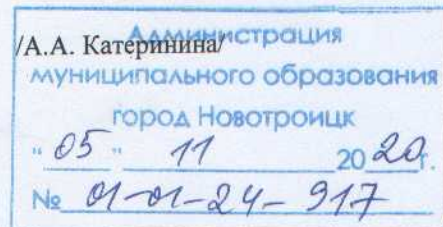 /А.А. Катеринина/
Администрация
муниципального образования
город Новотроицк
"05" 11 2020г.
№ 01-01-24-917